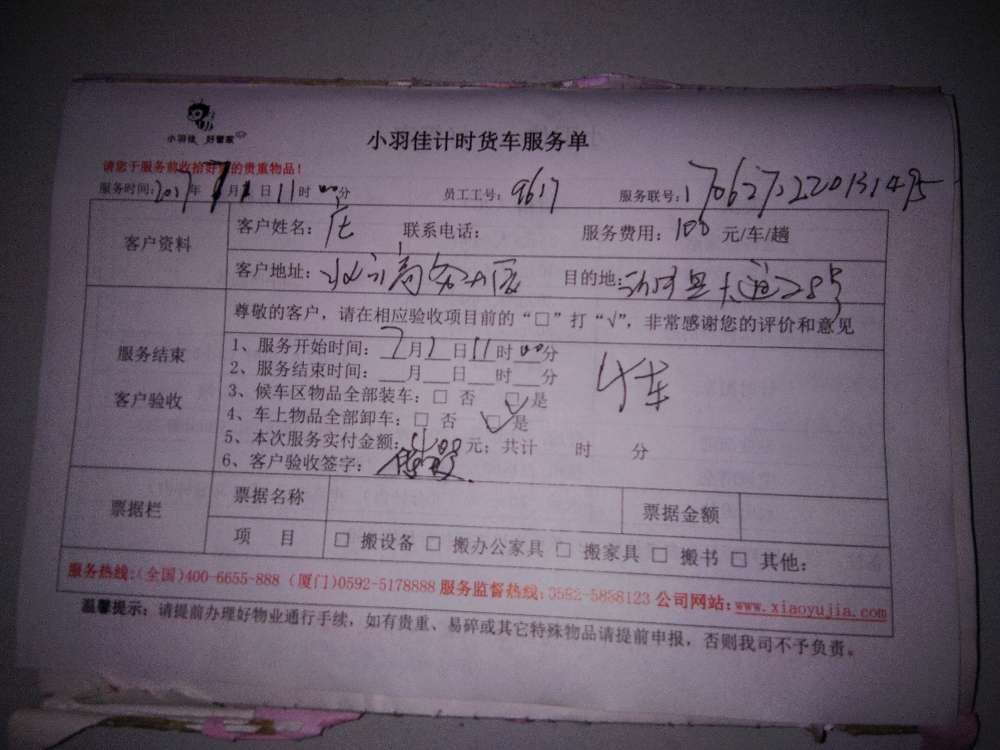 小羽佳 好管家
小羽佳计时货车服务单
请您于服务前收拾好您的贵重物品！
服务时间：2017年7月1日11时00分 员工工号：9617 服务联号：170627220131495
客户资料
客户姓名：庄 联系电话： 服务费用：100 元/车/趟
客户地址： 目的地：
服务结束
客户验收
尊敬的客户，请在相应验收项目前的“□”打“√”，非常感谢您的评价和意见
1、服务开始时间：7月1日11时00分
4车
2、服务结束时间：___月___日___时___分
3、候车区物品全部装车：□ 否 □是
4、车上物品全部卸车：□ 否 □是
5、本次服务实付金额：元；共计 时 分
6、客户验收签字：
票据栏
票据名称 票据金额
项 目 □ 搬设备 □ 搬办公家具 □ 搬家具 □ 搬书 □ 其他：
服务热线：(全国)400-6655-888 (厦门)0592-5178888 服务监督热线：0592-5838123 公司网站：www.xiaoyujia.com
温馨提示：请提前办理好物业通行手续，如有贵重、易碎或其它特殊物品请提前申报，否则我司不予负责。